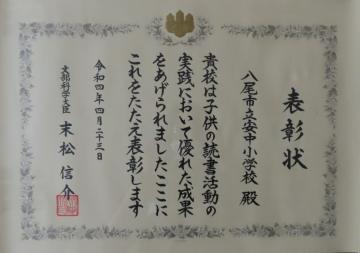 表彰状
八尾市立安中小学校 殿
貴校は子供の読書活動の
実践において優れた成果
をあげられましたここに
これをたたえ表彰します
令和四年四月二十三日
文部科学大臣 末松 信介